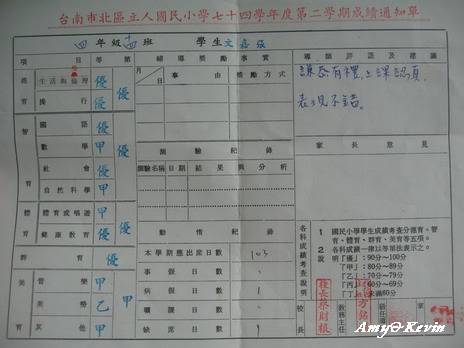 台南市北區立人國民小學七十四學年度第二學期成績通知單
四年級 班 學生文嘉
項目 等第
德育 生活與倫理 優 優
操行 優
智育 國語 優 優
數學 甲
社會 優
自然科學 甲
體育 體育或唱遊 甲 優
健康教育 優
群育 優
美育 音樂 甲 甲
美勞 乙
其他 甲
輔導獎勵事實
月日 事由 獎勵方式
測驗紀錄
測驗名稱 日期 結果與分析
勤惰紀錄
本學期應出席日數 103
事假日數
病假日數 1
曠課日數
缺席日數
導師評語及建議
謙恭有禮,上課認真,
表現不錯。
家長意見
各科成績考查說明
1 國民小學學生成績考查分德育、智育、體育、群育、美育等五項。
2 各科成績一律以等第法表示之。
說明「優」90分~100分
「甲」80分~89分
「乙」70分~79分
「丙」60分~69分
「丁」未滿60分
校長
教務主任
級任導師
Amy&Kevin